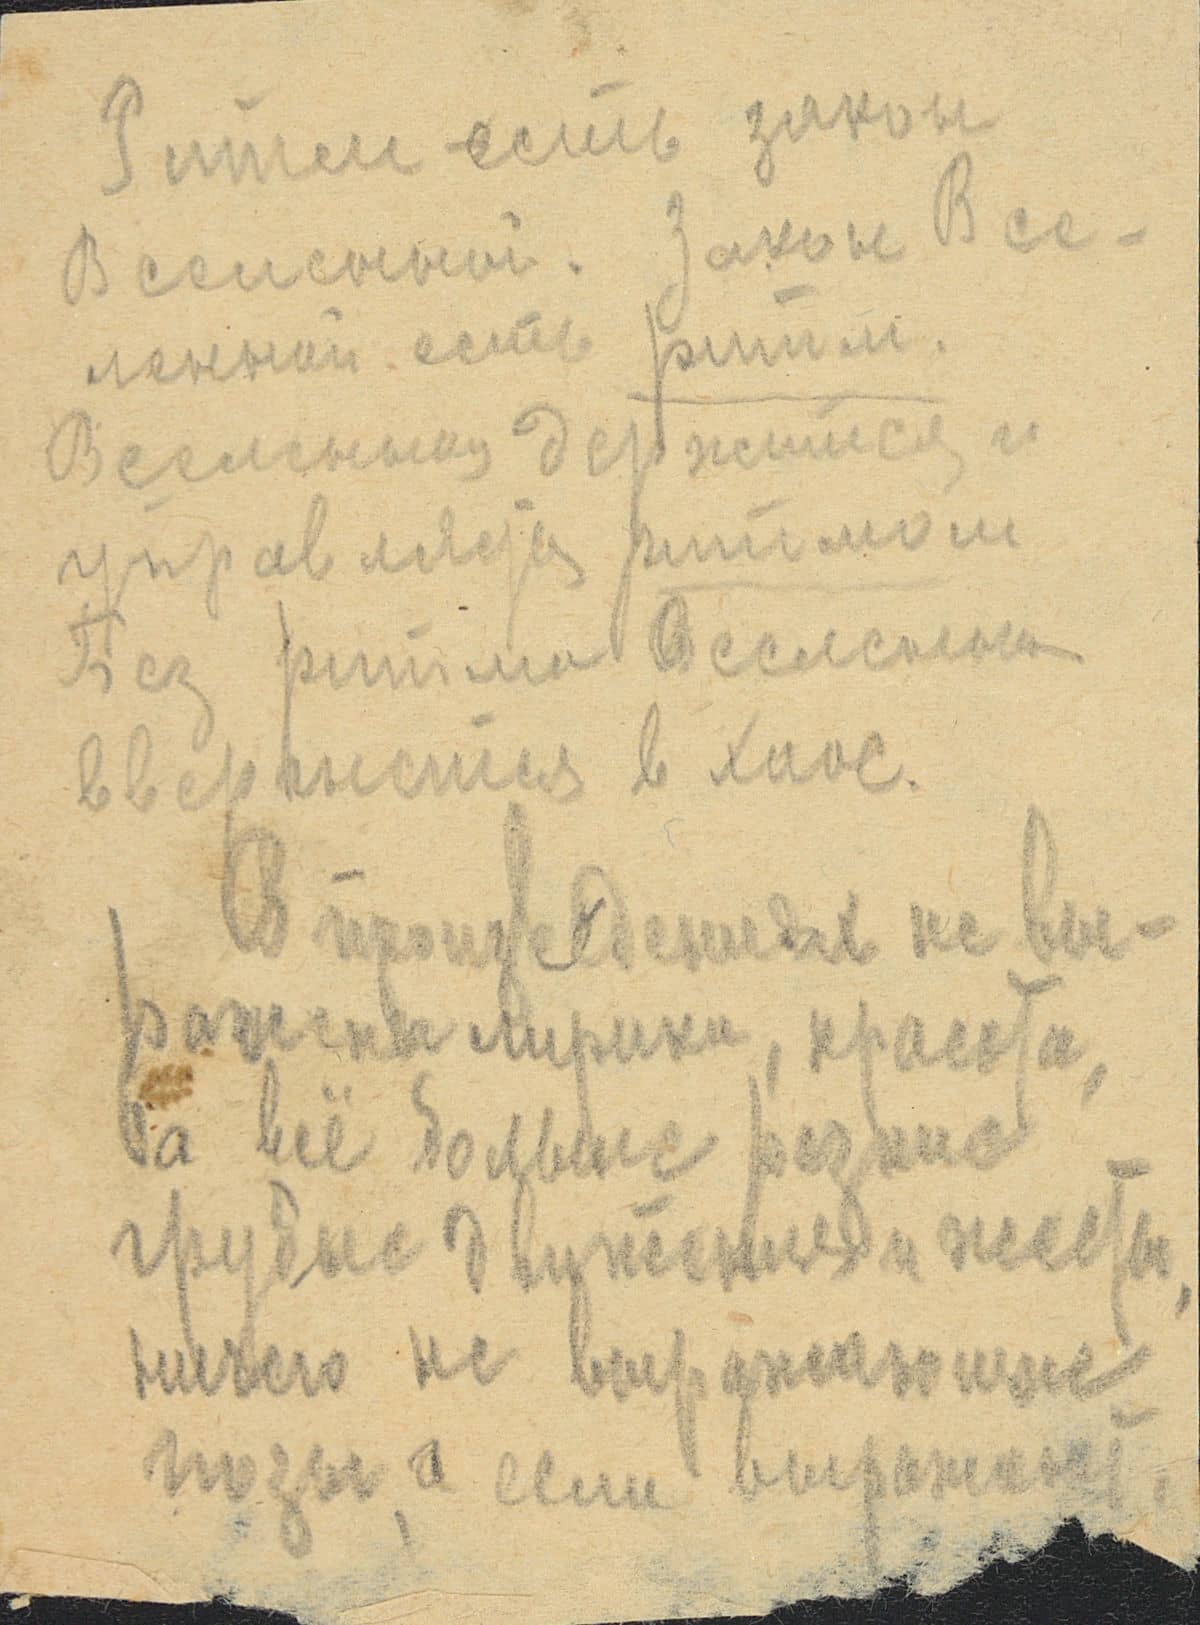 Ритм есть закон
Вселенной. Закон Все-
ленной есть ритм.
Вселенная держится и
управляется ритмом
Без ритма Вселенная
ввергнется в хаос.
В произведениях не вы-
ражены лирика, красота,
а всё больше резкие
грубые движения и жесты,
ничего не выражающие
позы, а если выражают,